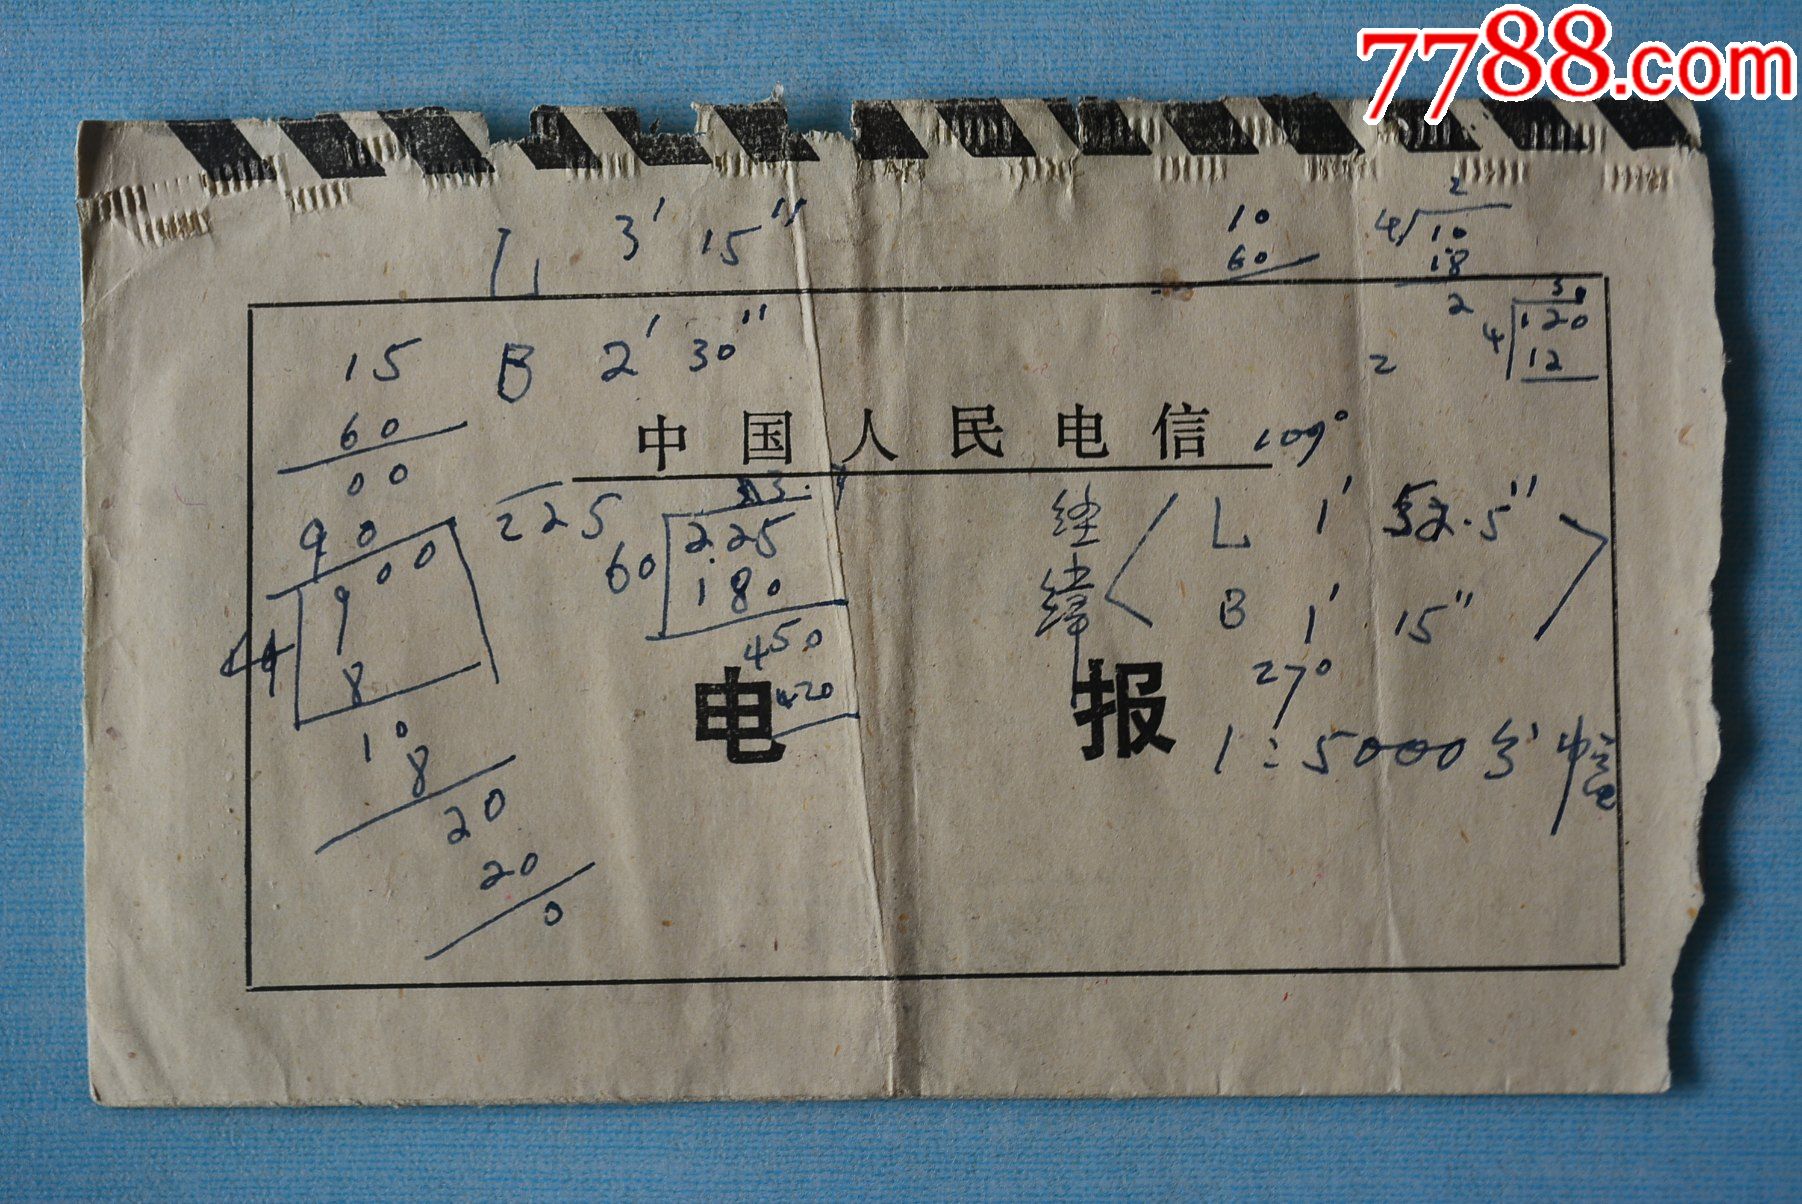 7788.com
L 3′ 15″
10
60
2
4 10
18
2
15 B 2′ 30″
60
00
90
3
4 120
12
2
中国人民电信
109°
225
60 225
180
450
420
经 L 1′ 52.5″
纬 B 1′ 15″
27°
00
9
8
10
8
20
20
0
电报
1:5000